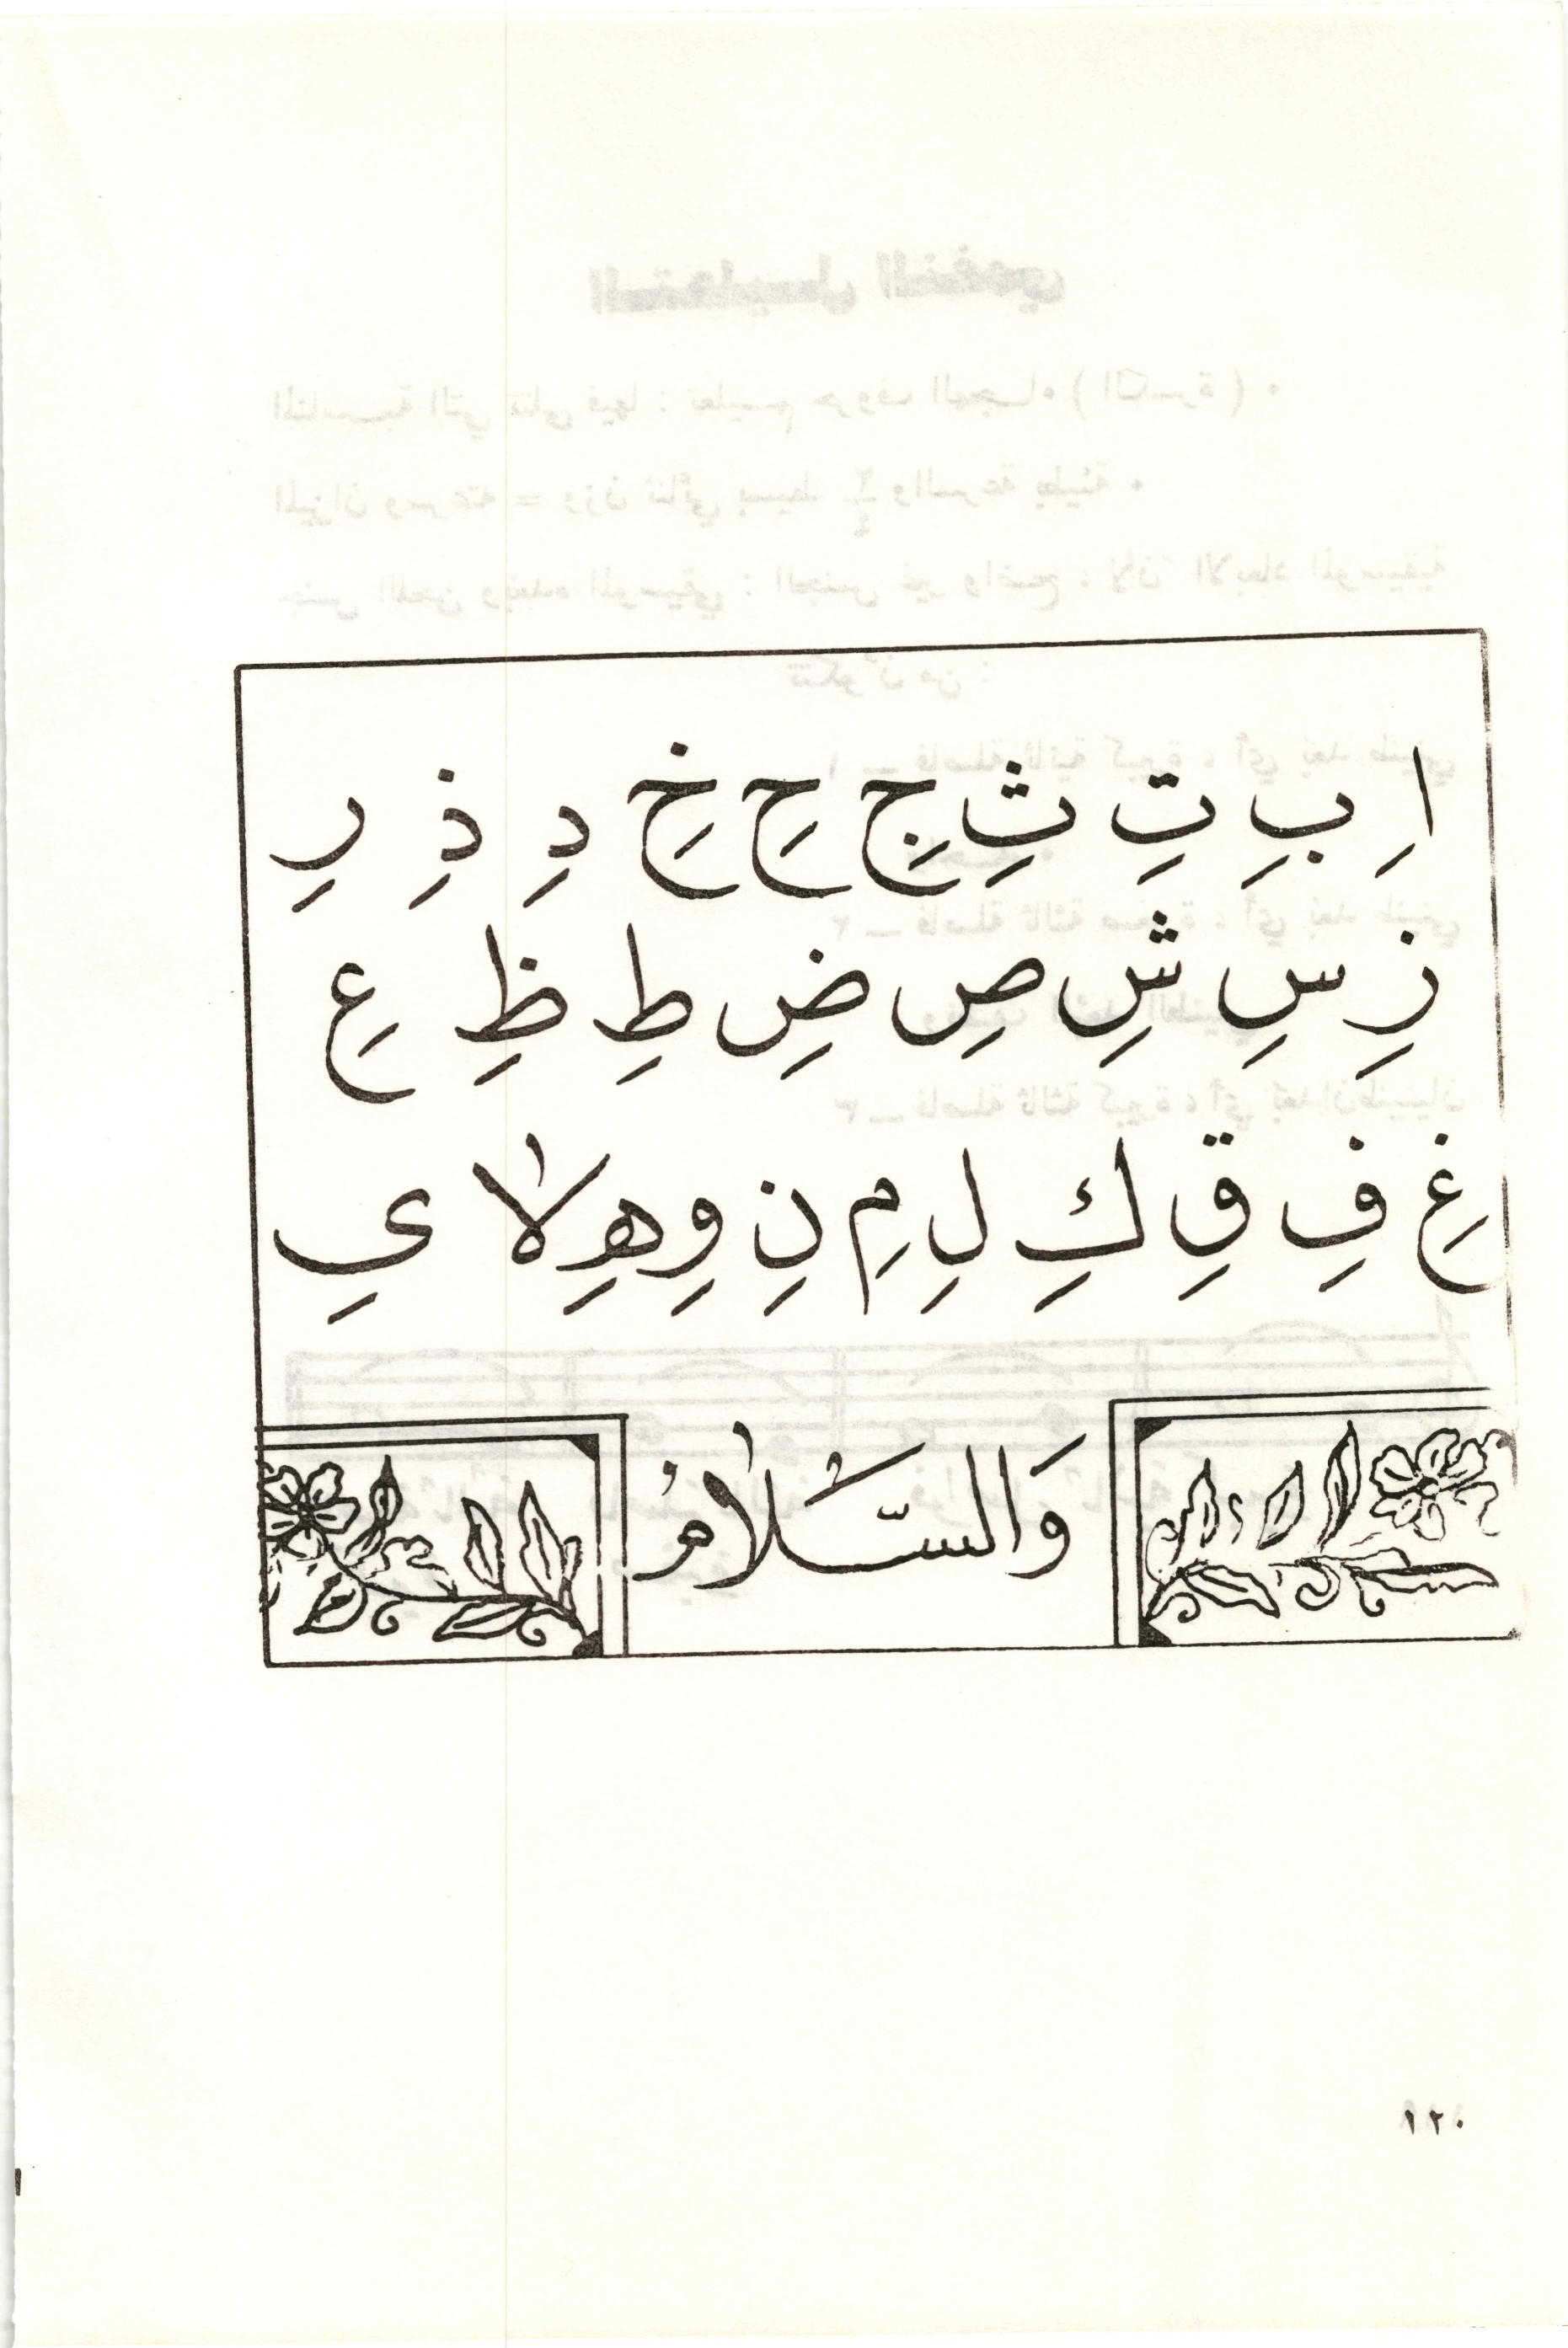 اِ بِ تِ ثِ جِ حِ خِ دِ ذِ رِ
زِ سِ شِ صِ ضِ طِ ظِ عِ
غِ فِ قِ كِ لِ مِ نِ وِ هِ لا يِ
وَالسَّلامُ
١٢٠